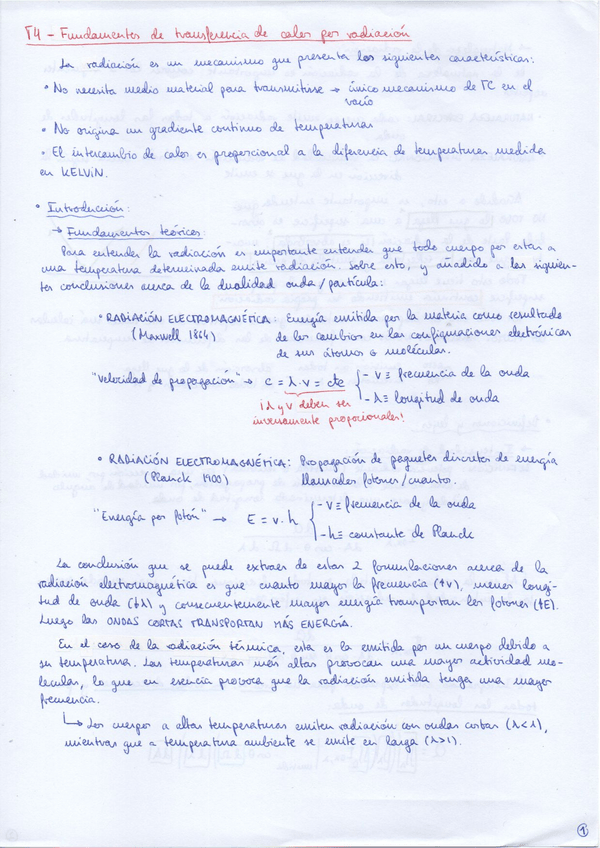 T4 - Fundamentos de transferencia de calor por radiación
La radiación es un mecanismo que presenta las siguientes características:
• No necesita medio material para transmitirse → único mecanismo de TC en el
vacío
• No origina un gradiente continuo de temperaturas
• El intercambio de calor es proporcional a la diferencia de temperaturas medida
en KELVIN.
• Introducción:
→ Fundamentos teóricos:
Para entender la radiación es importante entender que todo cuerpo por estar a
una temperatura determinada emite radiación. Sobre esto, y añadido a las siguien-
tes conclusiones acerca de la dualidad onda/partícula:
• RADIACIÓN ELECTROMAGNÉTICA: Energía emitida por la materia como resultado
(Maxwell 1864) de los cambios en las configuraciones electrónicas
de sus átomos o moléculas.
"Velocidad de propagación" → c = λ·ν = cte { - ν ≡ frecuencia de la onda
- λ ≡ longitud de onda
¡λ y ν deben ser
inversamente proporcionales!
• RADIACIÓN ELECTROMAGNÉTICA: Propagación de paquetes discretos de energía
(Planck 1900) llamados fotones/cuantos.
"Energía por fotón" → E = ν·h { - ν ≡ frecuencia de la onda
- h ≡ constante de Planck
La conclusión que se puede extraer de estas 2 formulaciones acerca de la
radiación electromagnética es que cuanto mayor la frecuencia (↑ν), menor longi-
tud de onda (↓λ) y consecuentemente mayor energía transportan los fotones (↑E).
Luego las ONDAS CORTAS TRANSPORTAN MÁS ENERGÍA.
En el caso de la radiación térmica, esta es la emitida por un cuerpo debido a
su temperatura. Las temperaturas más altas provocan una mayor actividad mo-
lecular, lo que en esencia provoca que la radiación emitida tenga una mayor
frecuencia.
↳ Los cuerpos a altas temperaturas emiten radiación con ondas cortas (λ<1),
mientras que a temperatura ambiente se emite en larga (λ>1).
1